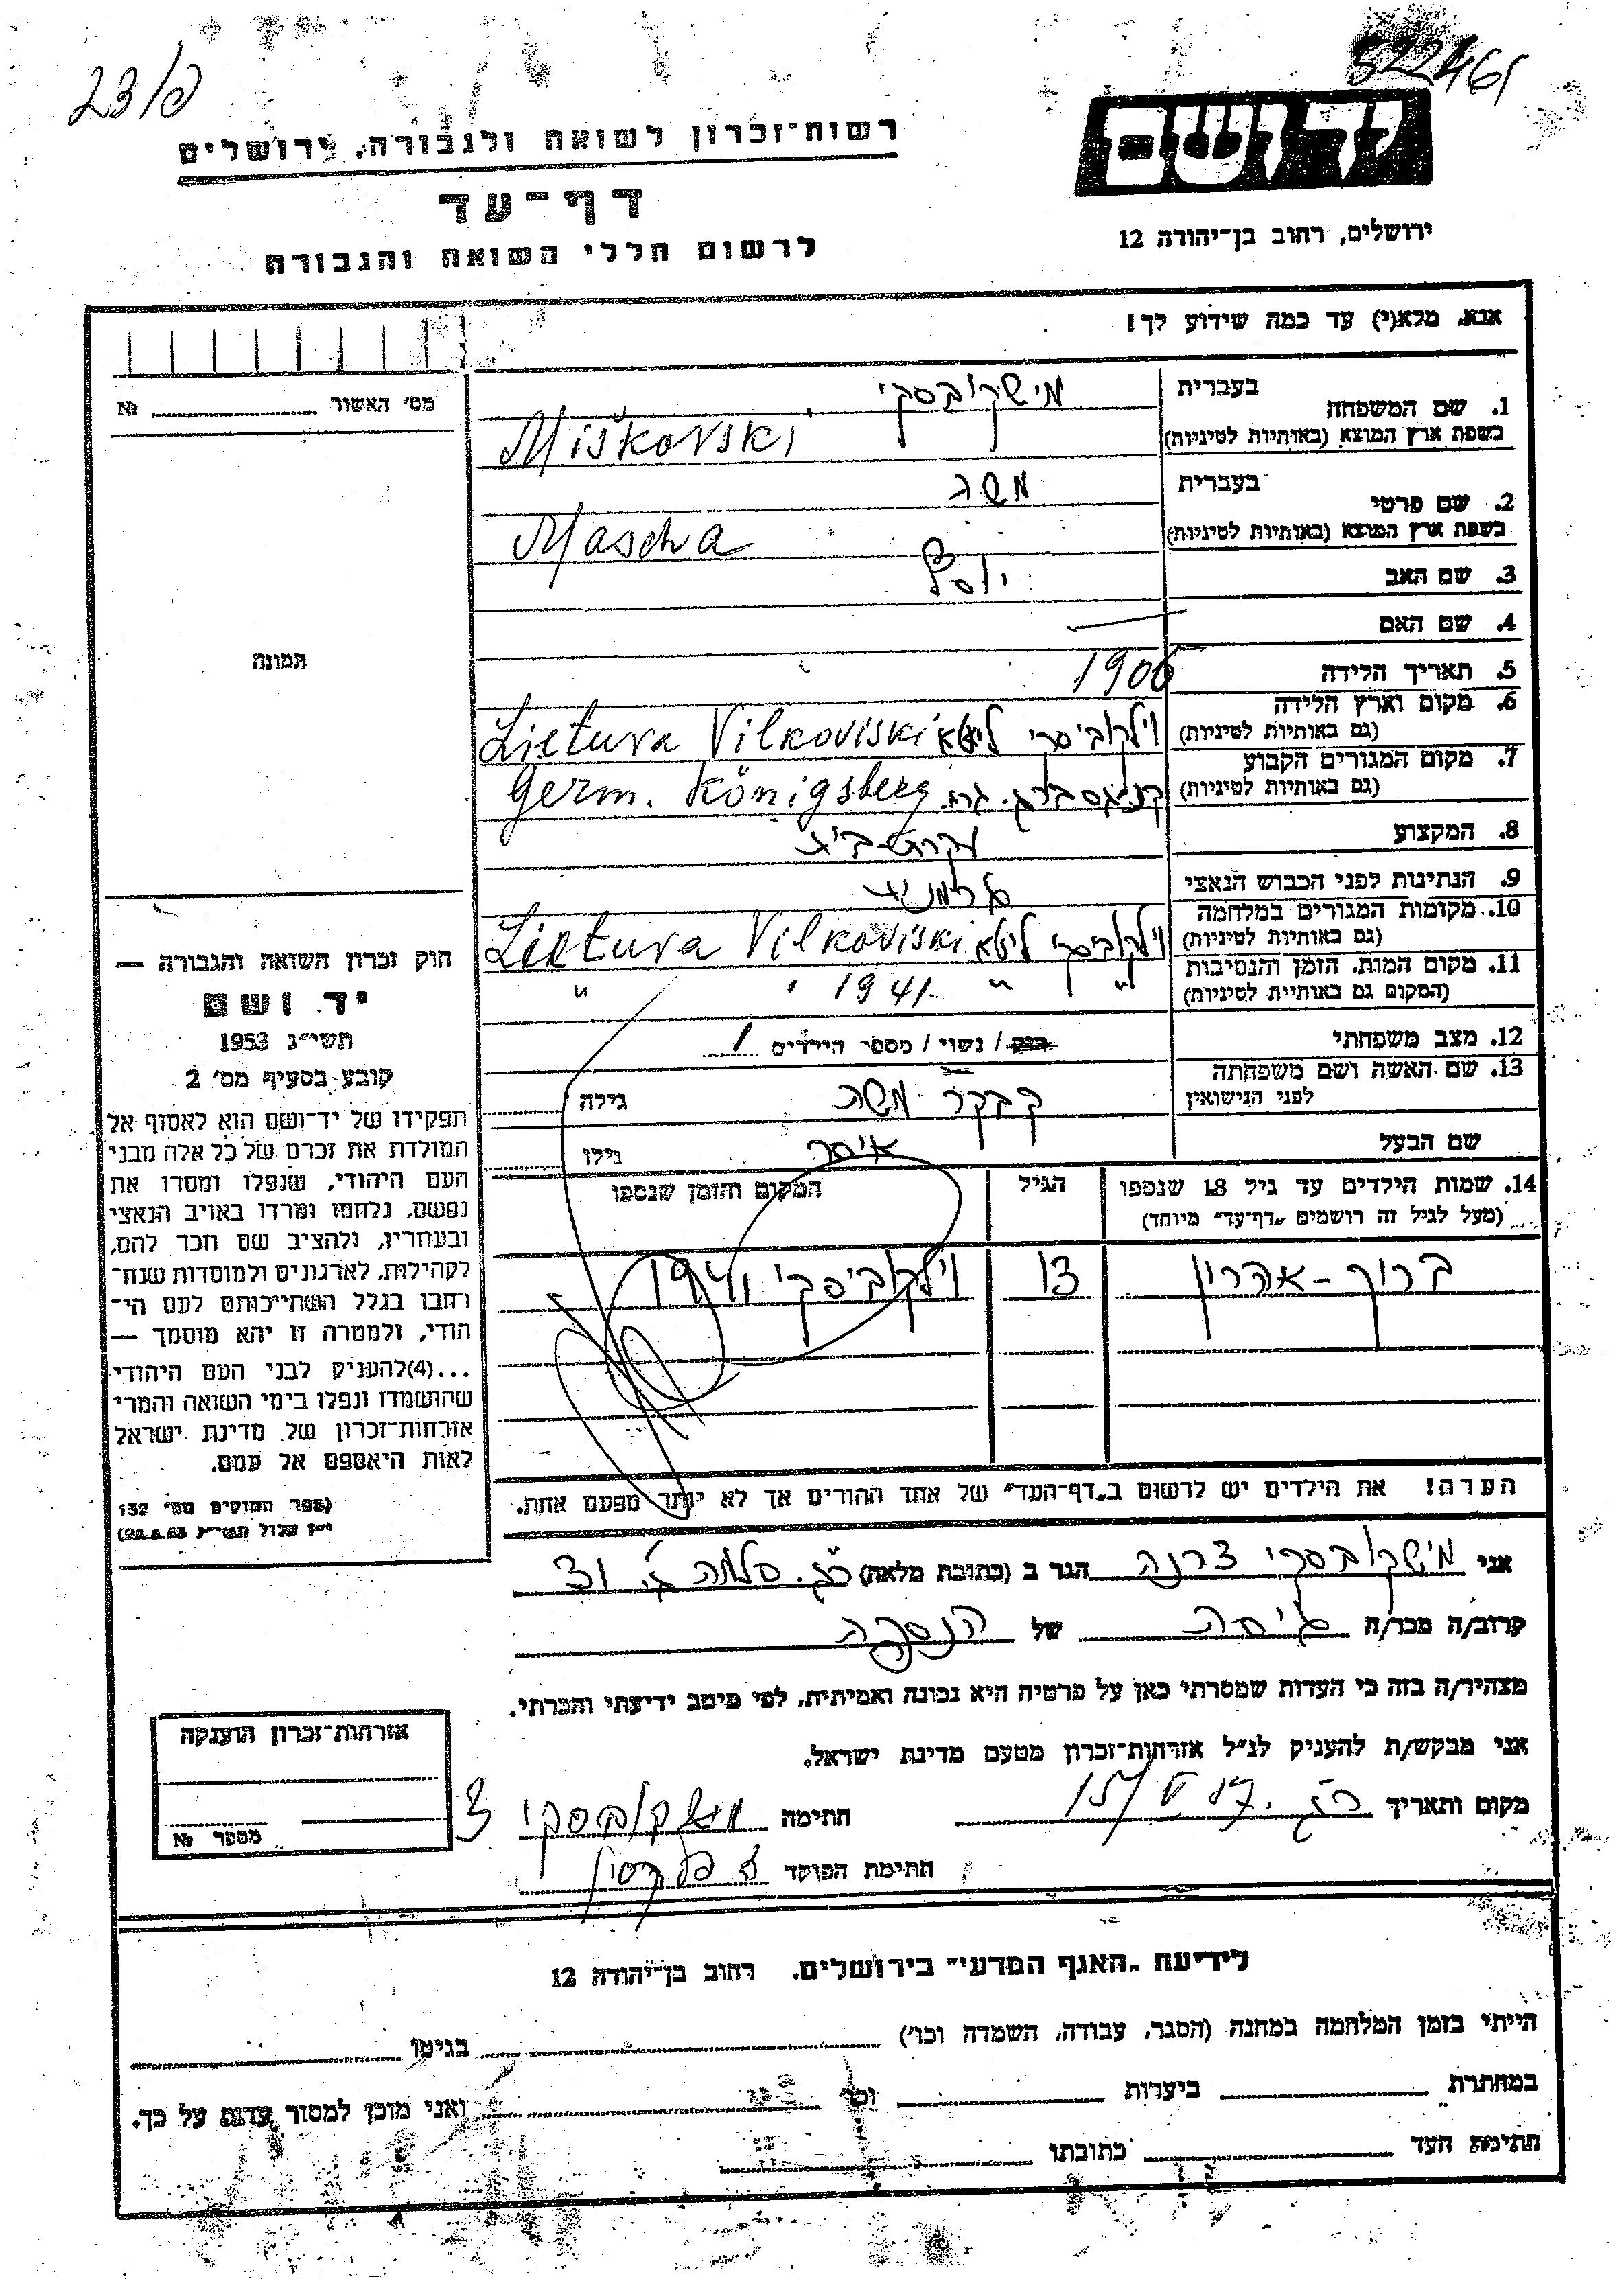 23/פ
522461
רשות־זכרון לשואה ולגבורה, ירושלים
דף־עד
לרשום חללי השואה והגבורה
יד ושם
ירושלים, רחוב בן־יהודה 12
אנא, מלא(י) עד כמה שידוע לך!
מס' האשור № 
1. שם המשפחה בעברית מישקובסקי
בשפת ארץ המוצא (באותיות לטיניות) Miškovski
2. שם פרטי בעברית משה
בשפת ארץ המוצא (באותיות לטיניות) Mascha
3. שם האב יוסף
4. שם האם —
5. תאריך הלידה 1906
6. מקום וארץ הלידה (גם באותיות לטיניות) וילקוביסקי ליטא Lietuva Vilkoviski
7. מקום המגורים הקבוע (גם באותיות לטיניות) קניגסברג. גרמ. Germ. Königsberg
8. המקצוע
9. הנתינות לפני הכבוש הנאצי
10. מקומות המגורים במלחמה (גם באותיות לטיניות) וילקוביסקי ליטא Lietuva Vilkoviski
11. מקום המות, הזמן והנסיבות (המקום גם באותיות לטיניות) " " 1941 "
12. מצב משפחתי רווק / נשוי / מספר הילדים 1
13. שם האשה ושם משפחתה לפני הנישואין משה גילה
שם הבעל איסר גילו
14. שמות הילדים עד גיל 18 שנספו
(מעל לגיל זה רושמים "דף־עד" מיוחד)
הגיל
המקום והזמן שנספו
ברוך - אהרון 13 וילקוביסקי 1941
הערה! את הילדים יש לרשום ב"דף־העד" של אחד ההורים אך לא יותר מפעם אחת.
תמונה
חוק זכרון השואה והגבורה —
יד ושם
תשי"ג 1953
קובע בסעיף מס' 2
תפקידו של יד־ושם הוא לאסוף אל
המולדת את זכרם של כל אלה מבני
העם היהודי, שנפלו ומסרו את
נפשם, נלחמו ומרדו באויב הנאצי
ובעוזריו, ולהציב שם וזכר להם,
לקהילות, לארגונים ולמוסדות שנח־
רבו בגלל השתייכותם לעם הי־
הודי, ולמטרה זו יהא מוסמך —
...(4) להעניק לבני העם היהודי
שהושמדו ונפלו בימי השואה והמרי
אזרחות־זכרון של מדינת ישראל
לאות היאספם אל עמם.
(ספר החוקים מס' 132
י"ז אלול תשי"ג 28.8.53)
אני מישקובסקי הגר ב (כתובת מלאה) ר"ג.
קרוב/ה מכר/ה גיסה של הנספה
מצהיר/ה בזה כי העדות שמסרתי כאן על פרטיה היא נכונה ואמיתית, לפי מיטב ידיעתי והכרתי.
אני מבקש/ת להעניק לנ"ל אזרחות־זכרון מטעם מדינת ישראל.
מקום ותאריך ר"ג. 15/V חתימה מישקובסקי צ
חתימת הפוקד
אזרחות־זכרון הוענקה
מספר №
לידיעת "האגף המדעי" בירושלים, רחוב בן־יהודה 12
הייתי בזמן המלחמה במחנה (הסגר, עבודה, השמדה וכו') בגיטו
במחתרת ביערות וכו' ואני מוכן למסור עדות על כך.
חתימת העד כתובתו